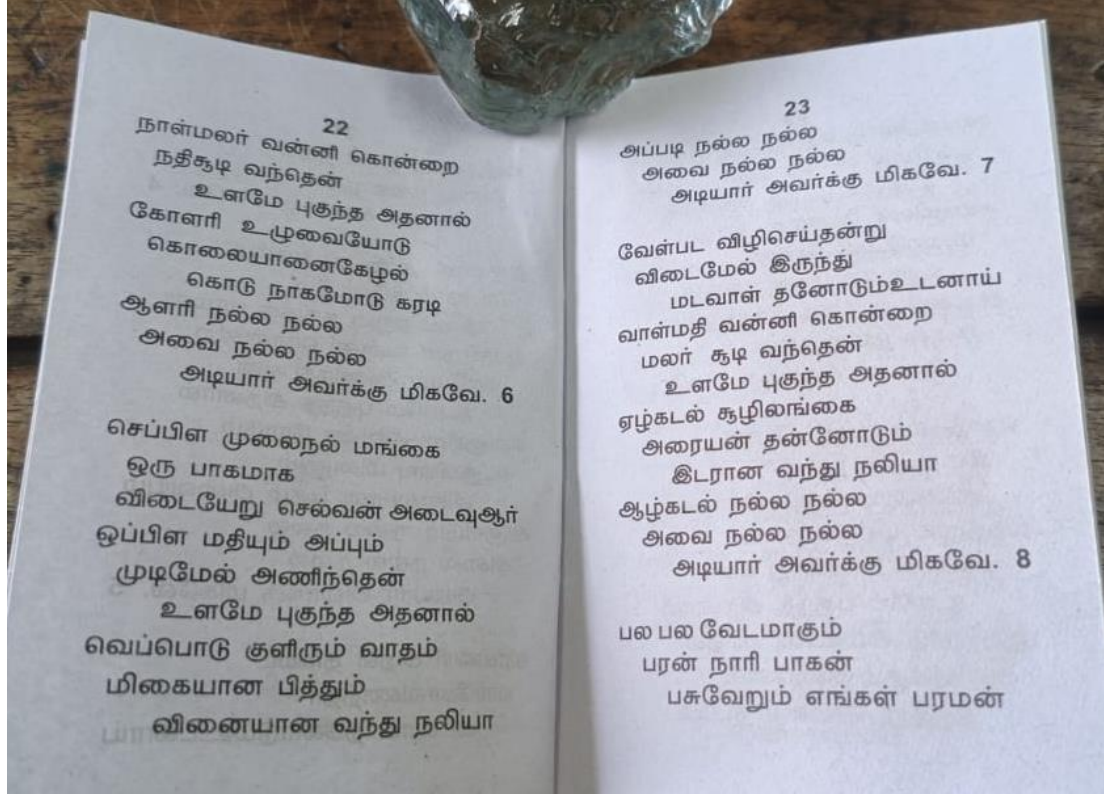 22
நாள்மலர் வன்னி கொன்றை
நதிசூடி வந்தென்
உளமே புகுந்த அதனால்
கோளரி உழுவையோடு
கொலையானைகேழல்
கொடு நாகமோடு கரடி
ஆளரி நல்ல நல்ல
அவை நல்ல நல்ல
அடியார் அவர்க்கு மிகவே. 6
செப்பிள முலைநல் மங்கை
ஒரு பாகமாக
விடையேறு செல்வன் அடைவுஆர்
ஒப்பிள மதியும் அப்பும்
முடிமேல் அணிந்தென
உளமே புகுந்த அதனால்
வெப்பொடு குளிரும் வாதம்
மிகையான பித்தும்
வினையான வந்து நலியா
23
அப்படி நல்ல நல்ல
அவை நல்ல நல்ல
அடியார் அவர்க்கு மிகவே. 7
வேள்பட விழிசெய்தன்று
விடைமேல் இருந்து
மடவாள் தனோடும்உடனாய்
வாள்மதி வன்னி கொன்றை
மலர் சூடி வந்தென்
உளமே புகுந்த அதனால்
ஏழ்கடல் சூழிலங்கை
அரையன் தன்னோடும்
இடரான வந்து நலியா
ஆழ்கடல் நல்ல நல்ல
அவை நல்ல நல்ல
அடியார் அவர்க்கு மிகவே. 8
பல பல வேடமாகும்
பரன் நாரி பாகன்
பசுவேறும் எங்கள் பரமன்